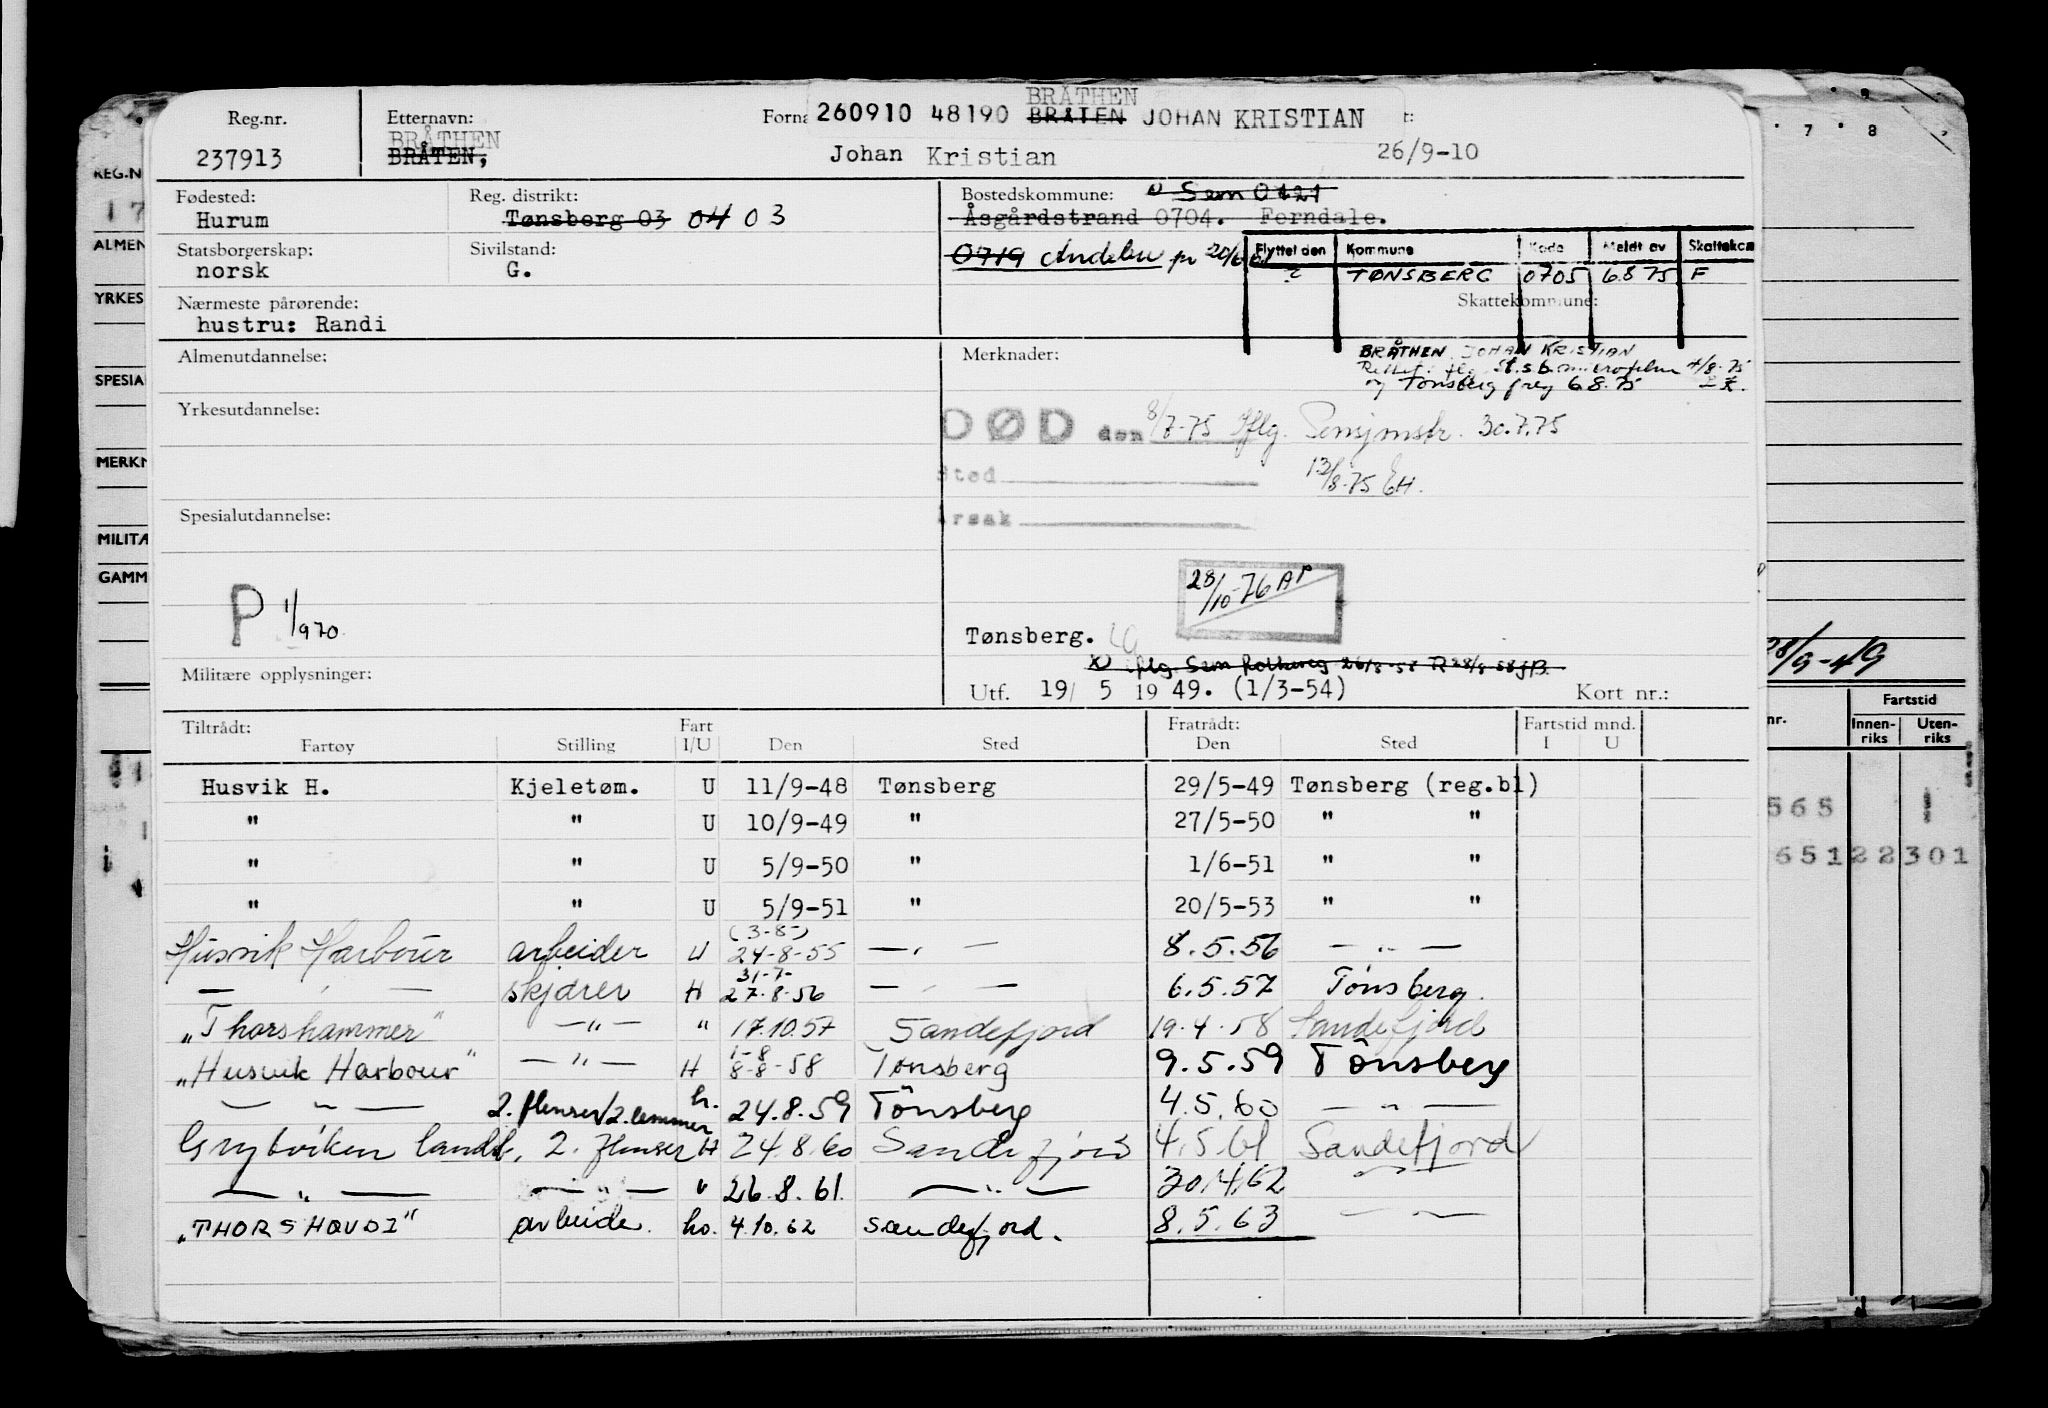 Reg.nr. Etternavn: Forna 260910 48190 BRÅTHEN BRÅTEN JOHAN KRISTIAN t:
BRÅTHEN
237913 BRÅTEN, Johan Kristian 26/9-10
Fødested: Reg. distrikt: Bostedskommune: Sem 0721
Hurum Tønsberg 03 04 03 Åsgårdstrand 0704. Ferndale.
Statsborgerskap: Sivilstand: 0719 Andebu pr 20/6 61 Flyttet den Kommune Kode Meldt av Skattekom
norsk G. ? TØNSBERG 0705 6.8 75 F
Nærmeste pårørende: Skattekommune:
hustru: Randi
Almenutdannelse: Merknader: BRÅTHEN JOHAN KRISTIAN
Rettet flg. St.s.b. 7/8-75
og Tønsberg freg 6.8.75
Yrkesutdannelse: DØD den 8/7-75 Iflg. 30.7.75
Sted 13/8-75 EH.
Årsak
Spesialutdannelse:
P 1/970
28/10-76 AP
Tønsberg.
flg. Sem folkereg 26/8-58 R 28/8-58
Militære opplysninger: Utf. 19/ 5 19 49. (1/3-54) Kort nr.:
Tiltrådt: Fart Fratrådt: Fartstid mnd.
Fartøy Stilling I/U Den Sted Den Sted I U
Husvik H. Kjeletøm. U 11/9-48 Tønsberg 29/5-49 Tønsberg (reg.bl)
" " U 10/9-49 " 27/5-50 " "
" " U 5/9-50 " 1/6-51 " "
" " U 5/9-51 " 20/5-53 " "
(3-8-)
Husvik Harbour arbeider U 24-8-55 — " — 8.5.56 — " —
31-7-
— " — skjærer H 27.8.56 — " — 6.5.57 Tønsberg.
"Thorshammer" — " — " 17.10.57 Sandefjord 19.4.58 Sandefjord
1-8
"Husvik Harbour" — " — H 8-8-58 Tønsberg 9.5.59 Tønsberg
— " — 2. flenser/2. lemmer h. 24.8.59 Tönsberg 4.5.60 — " —
Grytviken landst. 2. flenser H 24.8.60 Sandefjord 4.5.61 Sandefjord
— " — — " — " 26.8.61. — " — 30.4.62 — " —
"THORSHØVDI" arbeide. ho. 4.10.62 Sandefjord. 8.5.63 — " —
REG.N
17
ALMEN
YRKES
SPESIA
MERKN
MILITÆ
GAMM
7 8
28/9-49
nr. Fartstid
Innen-riks Uten-riks
565 1
65122301